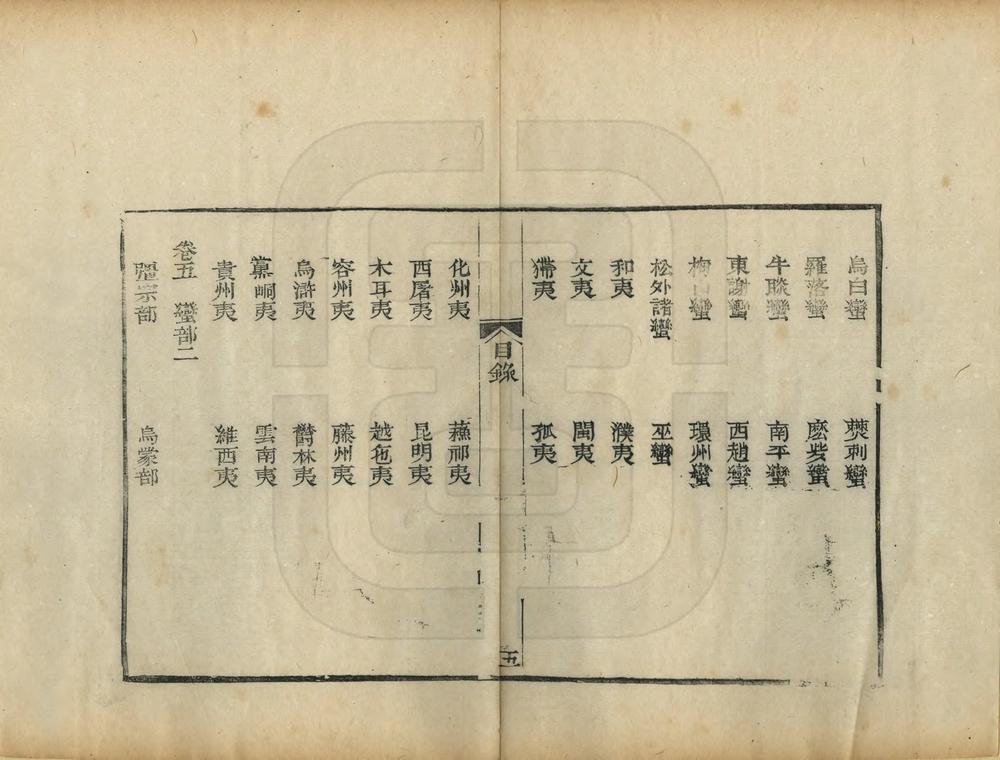 烏白蠻　僰剌蠻
羅落蠻　麼些蠻
牛睒蠻　南平蠻
東謝蠻　西趙蠻
梅山蠻　環州蠻
松外諸蠻　巫蠻
和夷　濮夷
文夷　閩夷
㹣夷　孤夷
目錄
五
化州夷　蘓祁夷
西屠夷　昆明夷
木耳夷　越巂夷
容州夷　藤州夷
烏滸夷　鬱林夷
黨峒夷　雲南夷
貴州夷　維西夷
卷五　蠻部二
羅宗部　烏蒙部